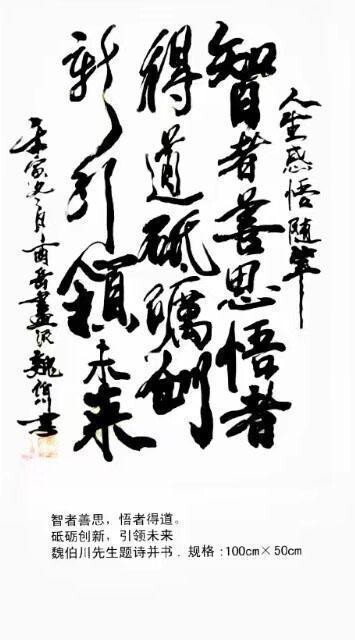 人生感悟随筆
智者善思悟者
得道砥礪創
新引領未来
寅元月 畫派魏 书
智者善思，悟者得道。
砥砺创新，引领未来
魏伯川先生题诗并书．规格：100cm×50cm